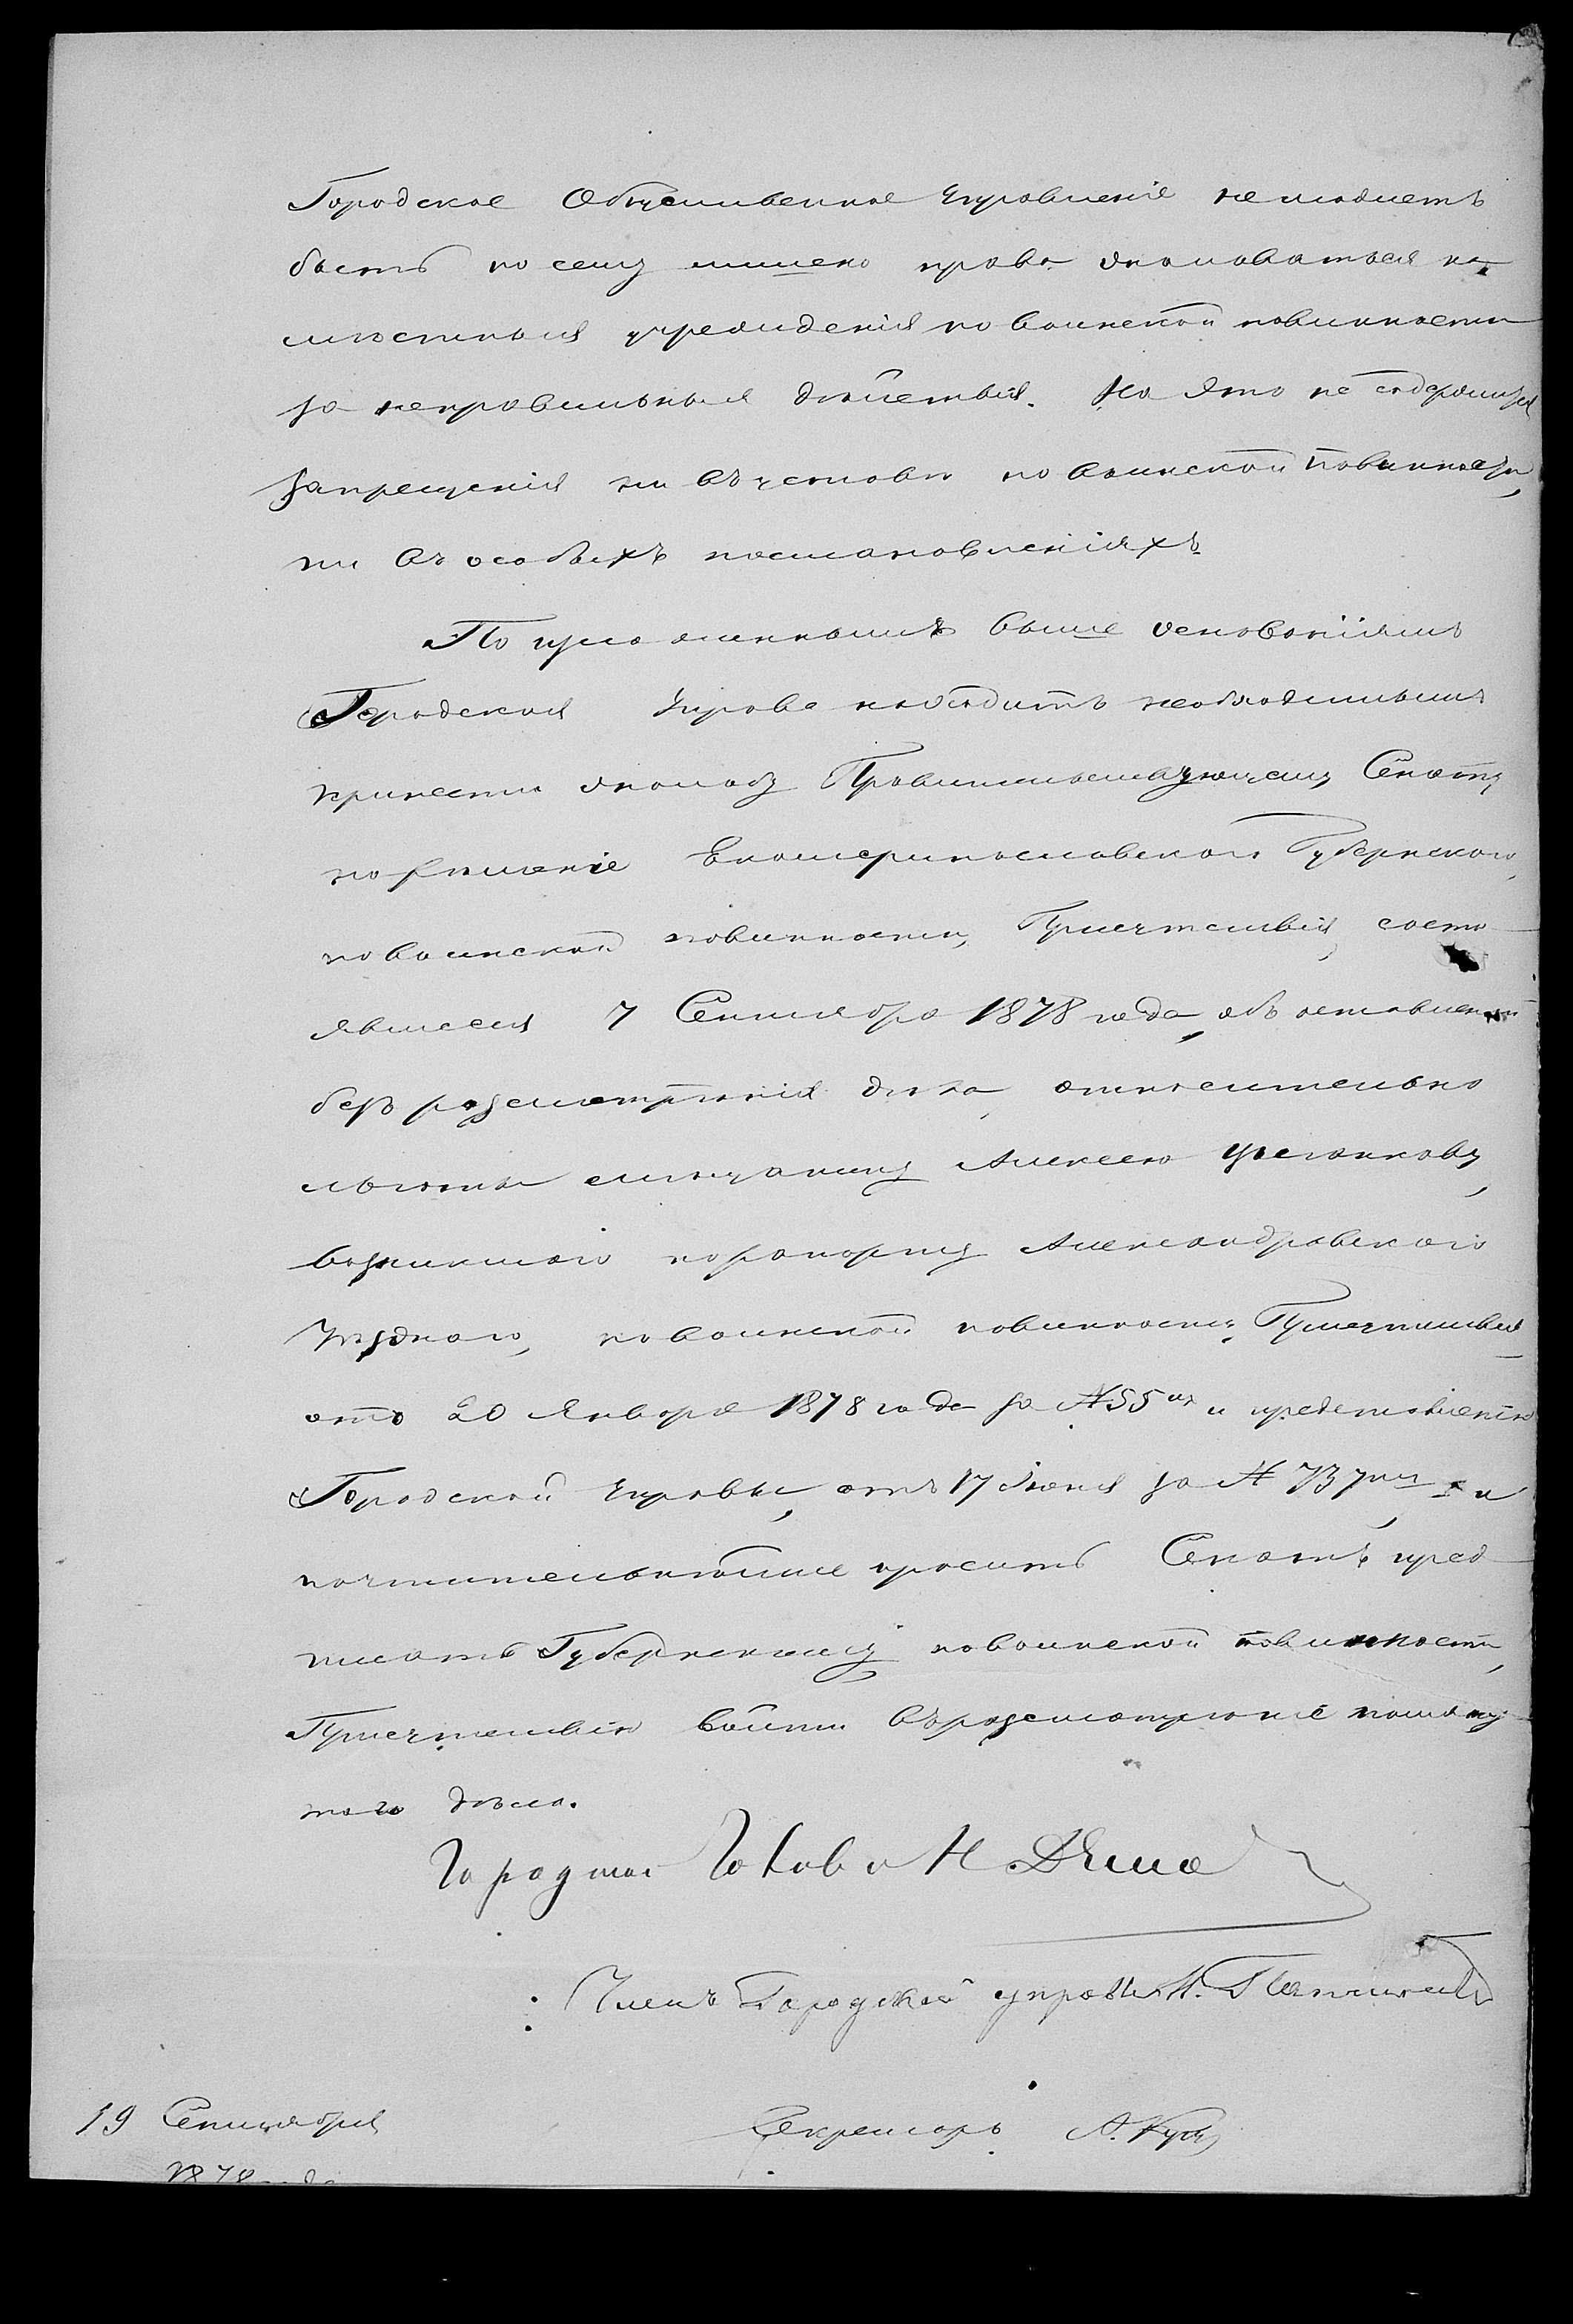 Городское Общественное Управленіе не можетъ
быть по сему лишено права жаловаться на
мѣстныя учрежденія по воинской повинности
за неправильныя дѣйствія. На это не содержится
запрещенія ни въ уставѣ по воинской повинности,
ни въ особыхъ постановленіяхъ.
По изложеннымъ выше основаніямъ
Городская Управа находитъ необходимымъ
принести жалобу Правительствующему Сенату,
на рѣшеніе Екатеринославскаго Губернскаго,
по воинской повинности, Присутствія, состо-
явшееся 7 Сентября 1878 года, объ оставленіи
безъ разсмотрѣнія дѣла, относительно
льготы мѣщанину Алексею Цыганкову,
возникшаго по рапорту Александровскаго
Уѣзднаго, по воинской повинности, Присутствія
отъ 20 Января 1878 года за № 55мъ и представленію
Городской Управы, отъ 17 Іюня за № 737мъ, и
почтительнѣйше проситъ Сенатъ пред-
писать Губернскому по воинской повинности,
Присутствію войти въ разсмотрѣніе помяну-
таго дѣла.
Городской Голова Н Демо
Членъ Городской управы
Секретарь А.
19 Сентября
1878 года